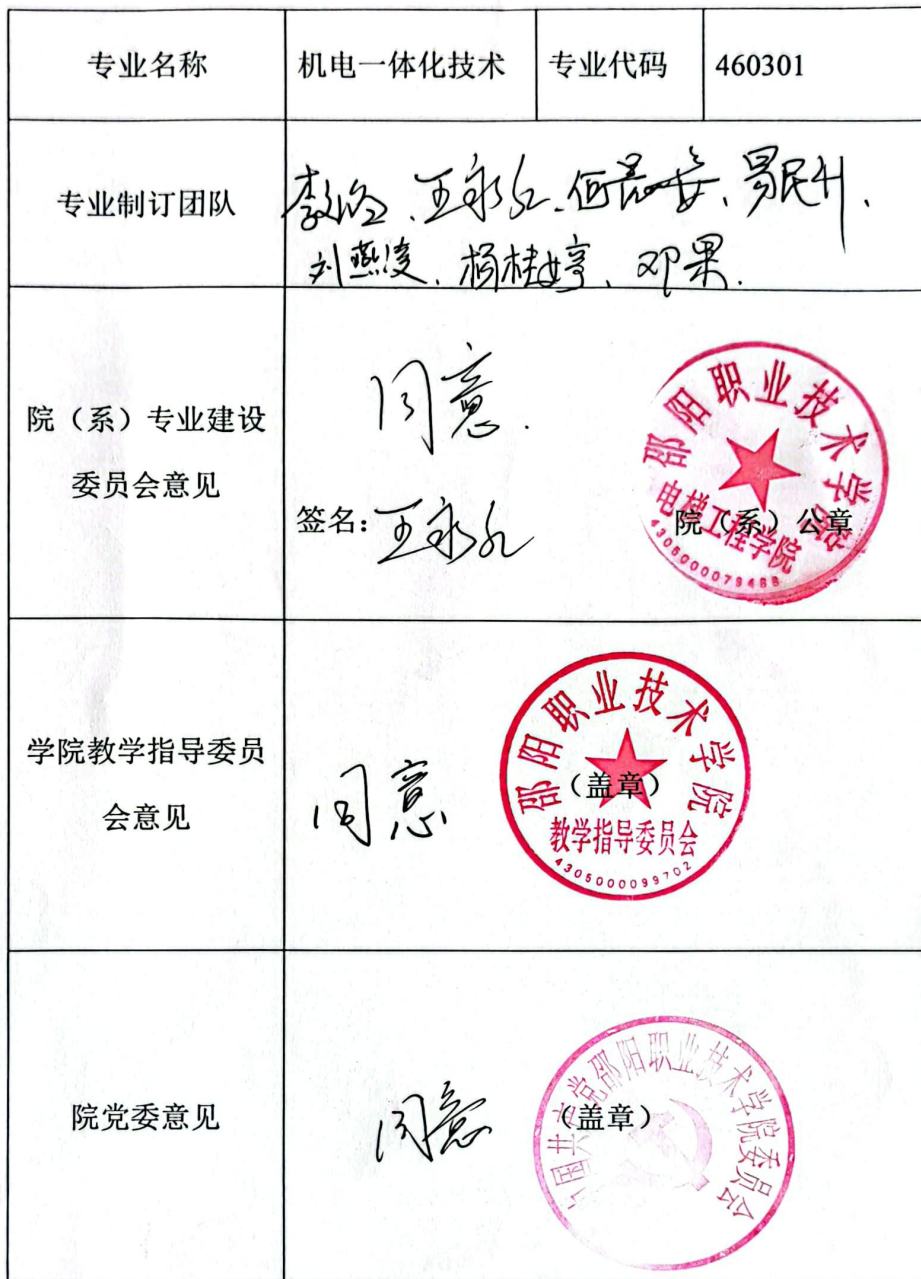 专业名称 机电一体化技术 专业代码 460301
专业制订团队
刘燕凌、杨桂婷、邓果.
院（系）专业建设
委员会意见
同意.
签名：王永红
院（系）公章
邵阳职业技术学院
电梯工程学院
4305000079488
学院教学指导委员
会意见
同意
（盖章）
邵阳职业技术学院
教学指导委员会
4305000099702
院党委意见
同意
（盖章）
中国共产党邵阳职业技术学院委员会